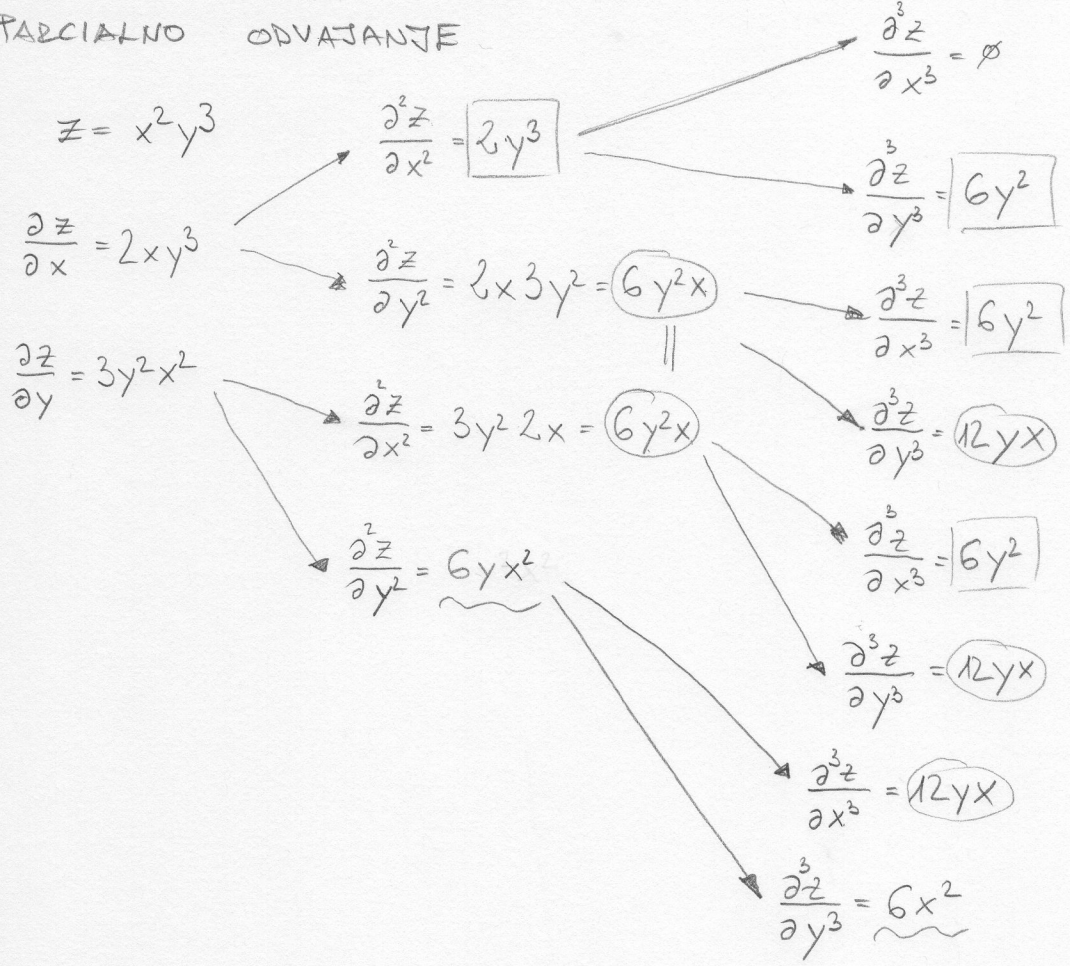 PARCIALNO ODVAJANJE
z = x²y³
∂z/∂x = 2xy³
∂z/∂y = 3y²x²
∂²z/∂x² = 2y³
∂²z/∂y² = 2x3y² = 6y²x
||
∂²z/∂x² = 3y²2x = 6y²x
∂²z/∂y² = 6yx²
∂³z/∂x³ = ø
∂³z/∂y³ = 6y²
∂³z/∂x³ = 6y²
∂³z/∂y³ = 12yx
∂³z/∂x³ = 6y²
∂³z/∂y³ = 12yx
∂³z/∂x³ = 12yx
∂³z/∂y³ = 6x²